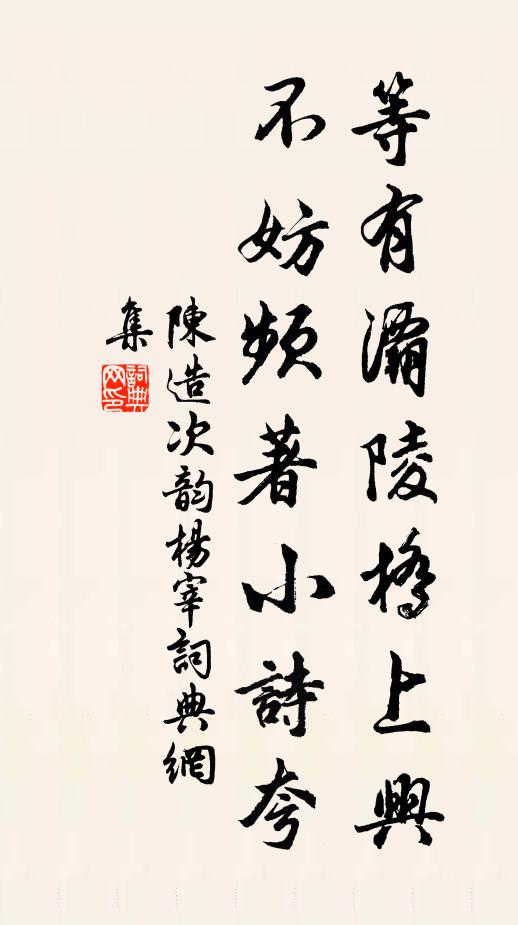 等有灞陵橋上興
不妨頻著小詩夸
陳造次韵楊宰詞典網
集
詞典
网印